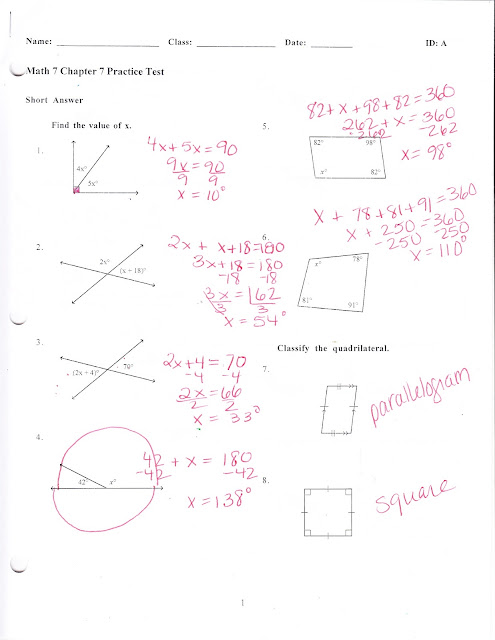 Name: ____________ Class: ____________ Date: ____________ ID: A
Math 7 Chapter 7 Practice Test
Short Answer
Find the value of x.
1.
4x°
5x°
4x+5x=90
9x=90
9 9
x=10°
2.
2x°
(x + 18)°
2x + x+18=180
3x+18=180
-18 -18
3x=162
3 3
x=54°
3.
(2x + 4)°
70°
2x+4=70
-4 -4
2x=66
2 2
x=33°
4.
42°
x°
42+x=180
-42 -42
x=138°
5.
82+x+98+82=360
262+x=360
-262 -262
x=98°
82°
98°
x°
82°
6.
x+78+81+91=360
x+250=360
-250 -250
x=110°
x°
78°
81°
91°
Classify the quadrilateral.
7.
parallelogram
8.
square
1